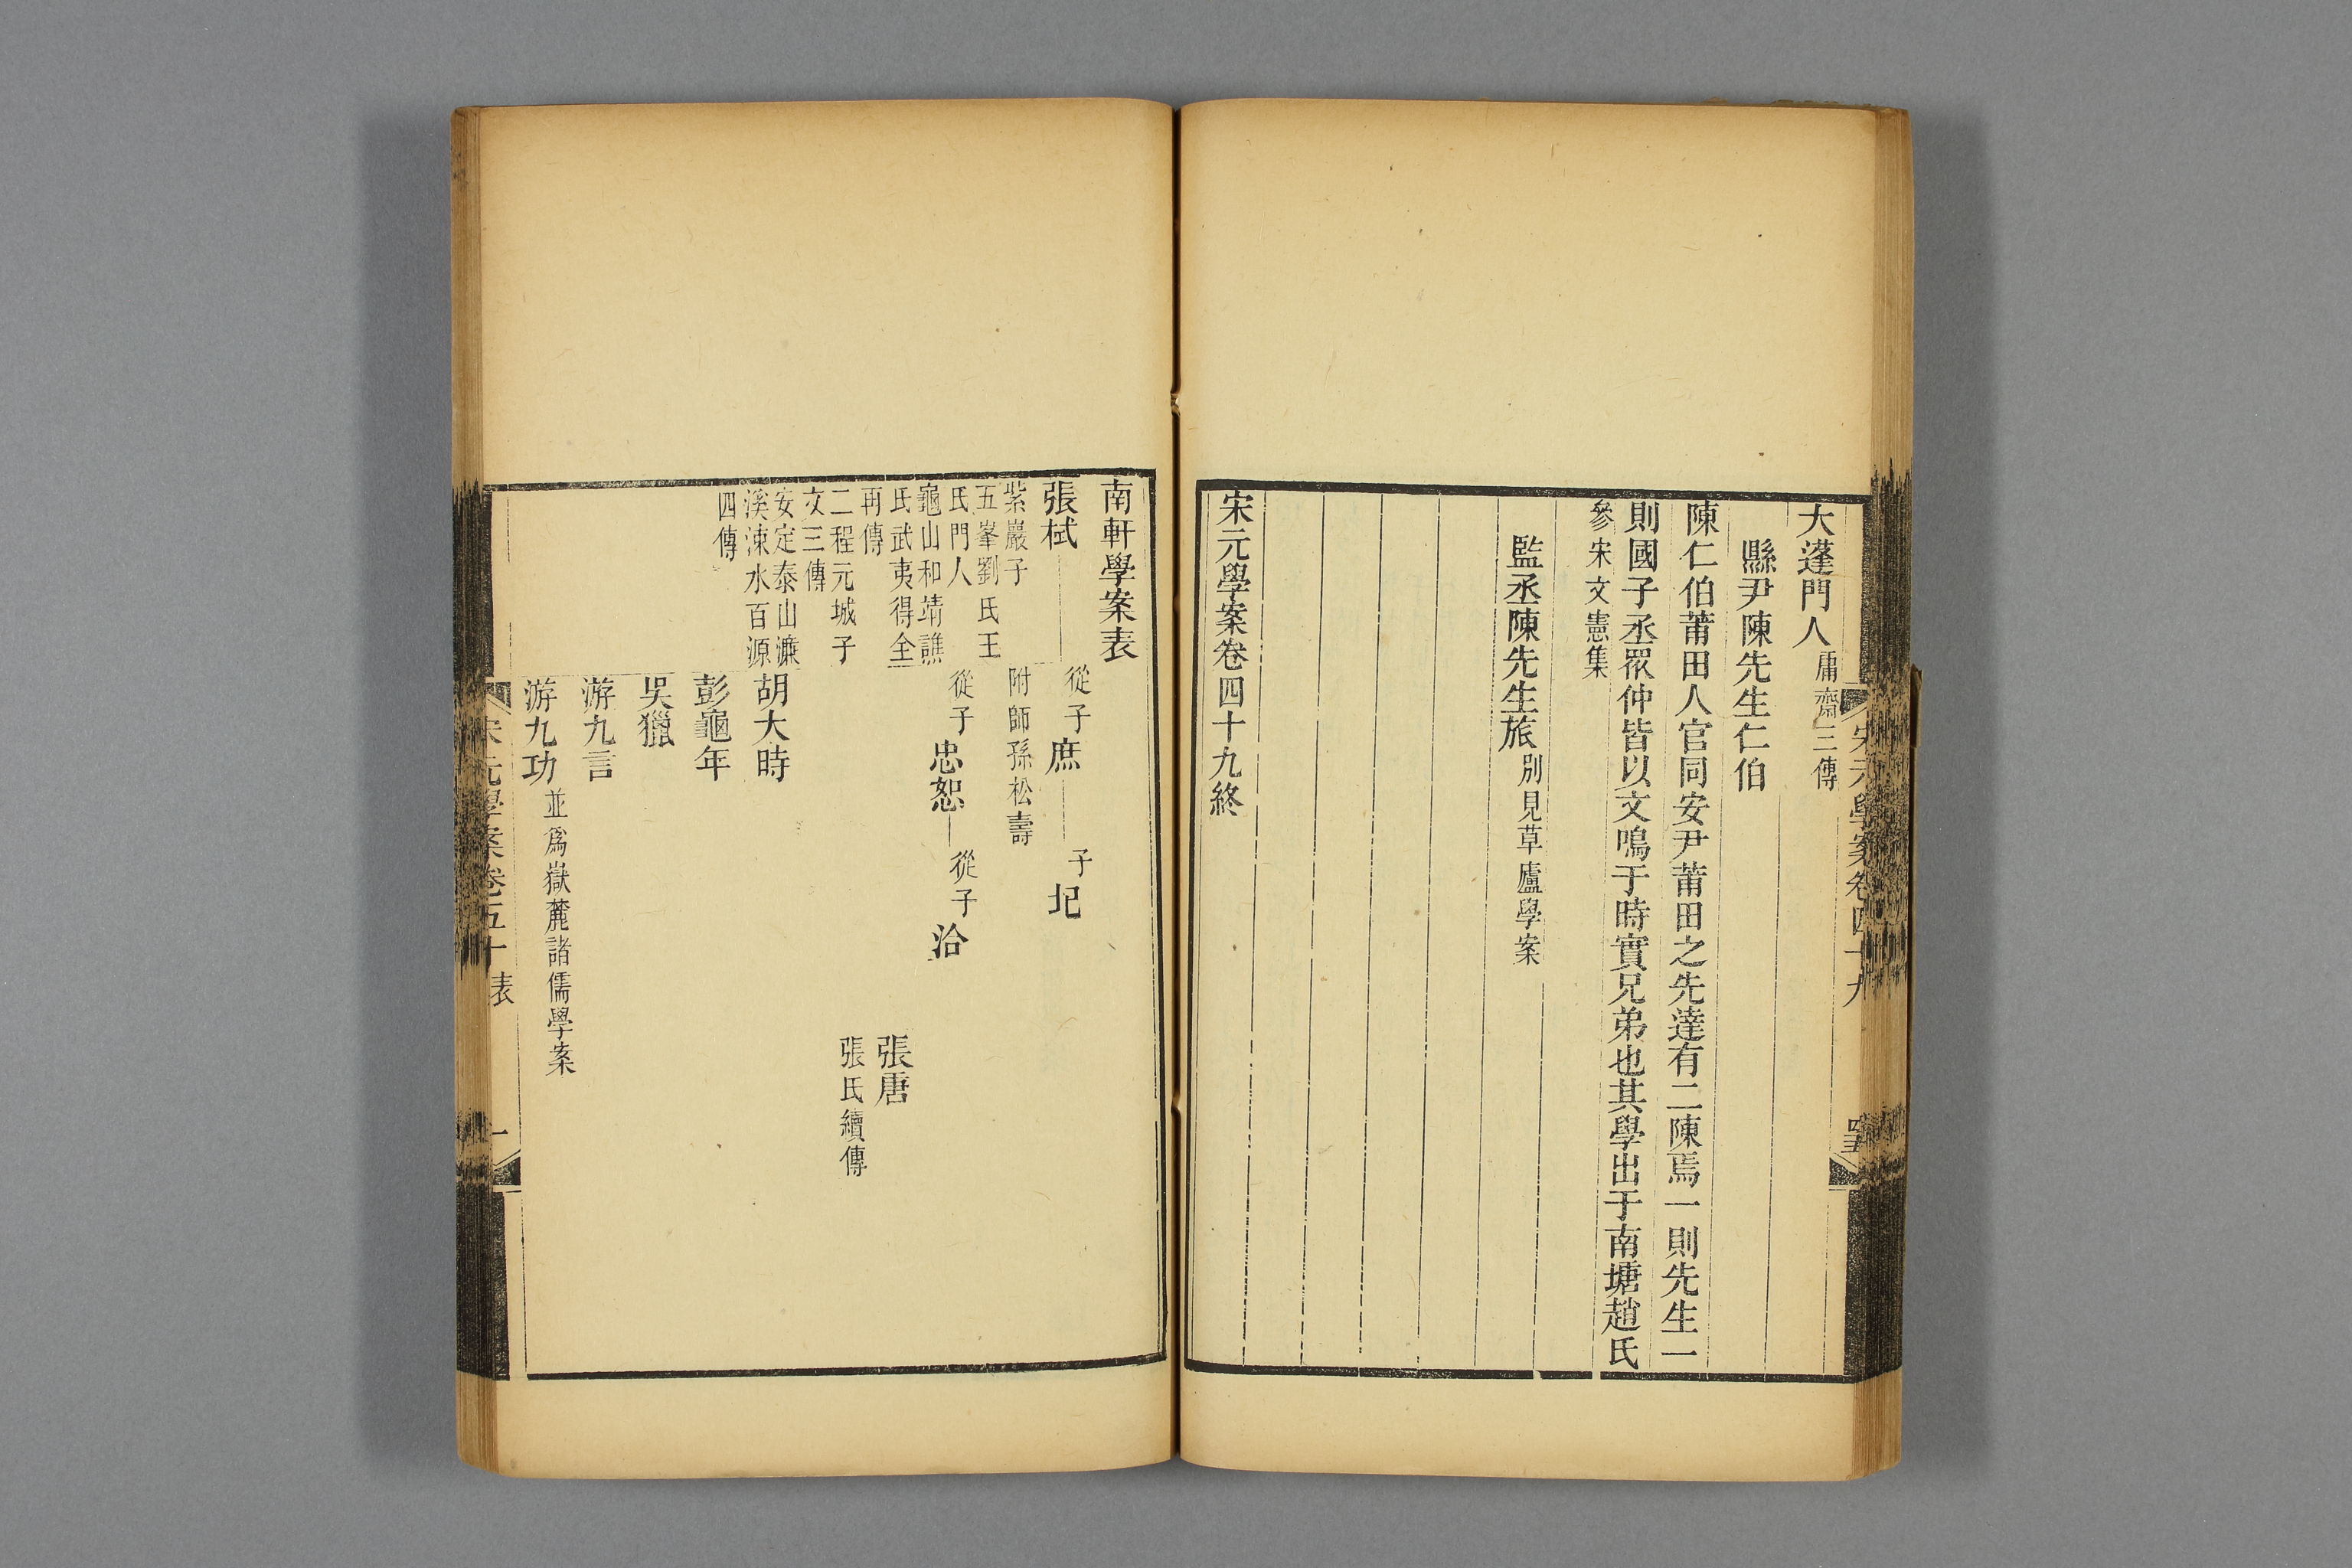 大蓬門人庸齋三傳
縣尹陳先生仁伯
陳仁伯莆田人官同安尹莆田之先達有二陳焉一則先生一
則國子丞眾仲皆以文鳴于時實兄弟也其學出于南塘趙氏
參宋文憲集
監丞陳先生旅別見草廬學案
宋元學案卷四十九終
宋元學案卷四十九
南軒學案表
張栻
紫巖子
五峯劉氏王
氏門人
龜山和靖譙
氏武夷得全
再傳
二程元城子
文三傳
安定泰山濂
溪涑水百源
四傳
從子庶
子圯
附師孫松壽
從子忠恕
從子洽
張唐
張氏續傳
胡大時
彭龜年
吳獵
游九言
游九功並為嶽麓諸儒學案
宋元學案卷五十表
一